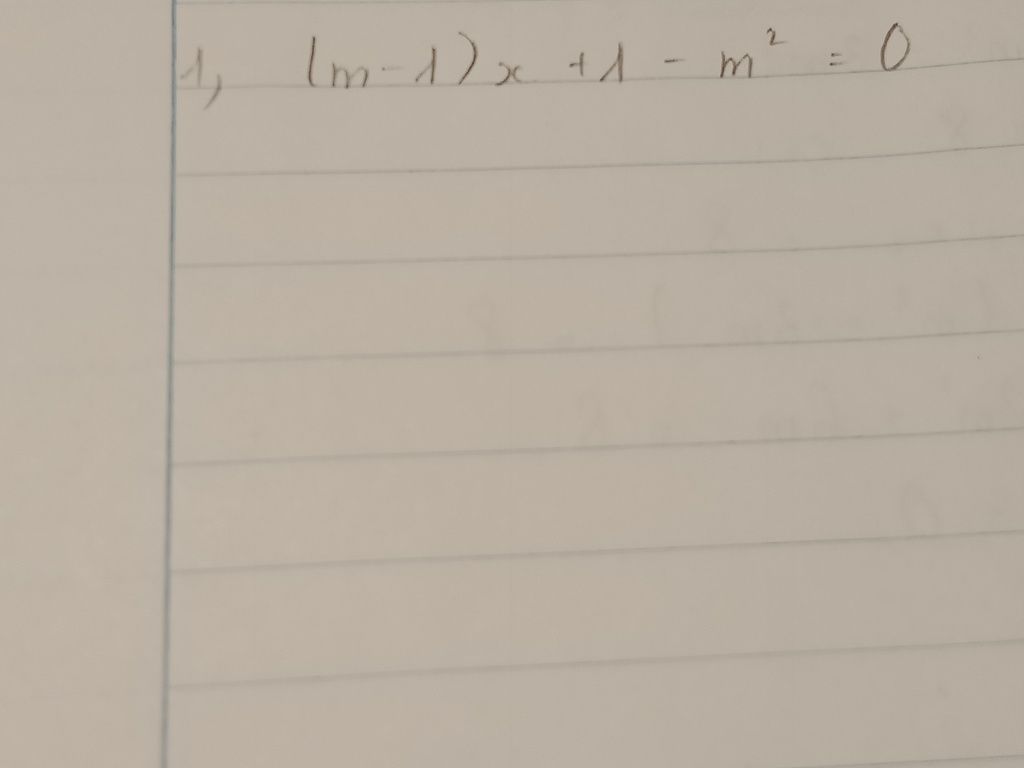 1, (m-1)x +1 - m² = 0